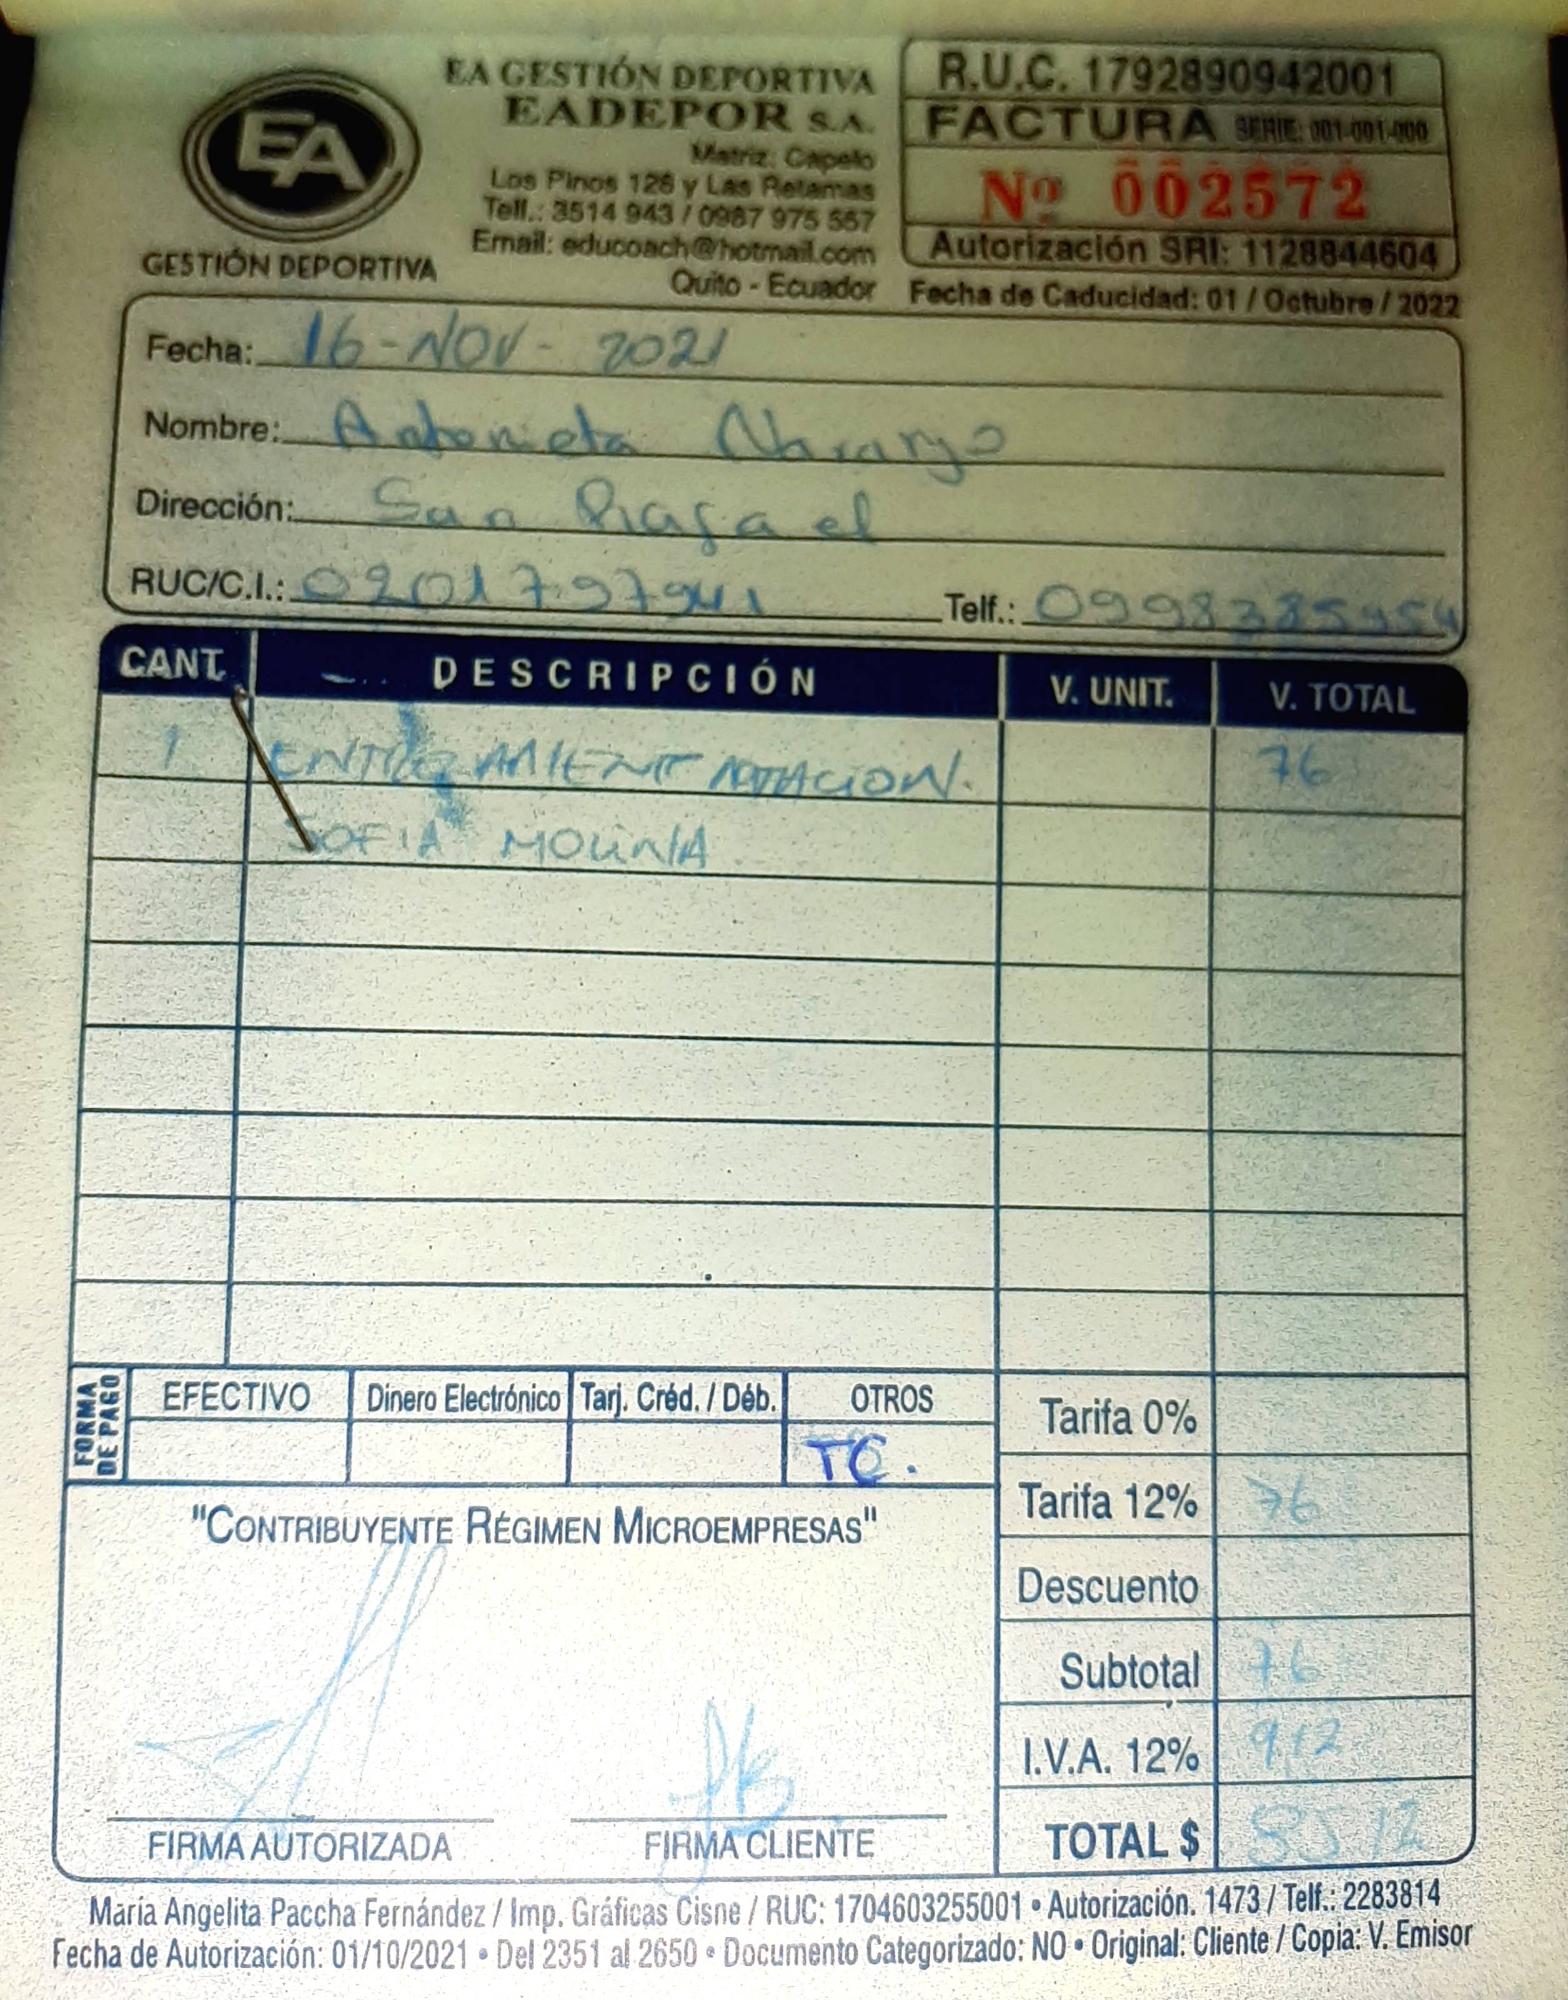 EA
GESTIÓN DEPORTIVA
EA GESTIÓN DEPORTIVA
EADEPOR S.A.
Matriz: Capelo
Los Pinos 126 y Las Retamas
Telf.: 3514 943 / 0987 975 557
Email: educoach@hotmail.com
Quito - Ecuador
R.U.C. 1792890942001
FACTURA SERIE: 001-001-000
Nº 002572
Autorización SRI: 1128844604
Fecha de Caducidad: 01 / Octubre / 2022
Fecha: 16-NOV-2021
Nombre: Antonieta Naranjo
Dirección: San Rafael
RUC/C.I.: 0201797941 Telf.:
CANT. DESCRIPCIÓN V. UNIT. V. TOTAL
1 NATACION. 76
SOFIA
FORMA DE PAGO
EFECTIVO Dinero Electrónico Tarj. Créd. / Déb. OTROS
TC.
Tarifa 0%
Tarifa 12% 76
Descuento
Subtotal 76
I.V.A. 12% 9,12
TOTAL $ 85,12
"CONTRIBUYENTE RÉGIMEN MICROEMPRESAS"
FIRMA AUTORIZADA FIRMA CLIENTE
María Angelita Paccha Fernández / Imp. Gráficas Cisne / RUC: 1704603255001 • Autorización. 1473 / Telf.: 2283814
Fecha de Autorización: 01/10/2021 • Del 2351 al 2650 • Documento Categorizado: NO • Original: Cliente / Copia: V. Emisor